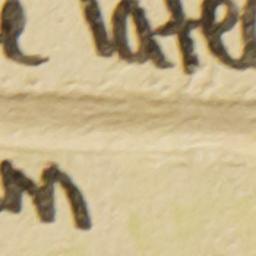 e late
m